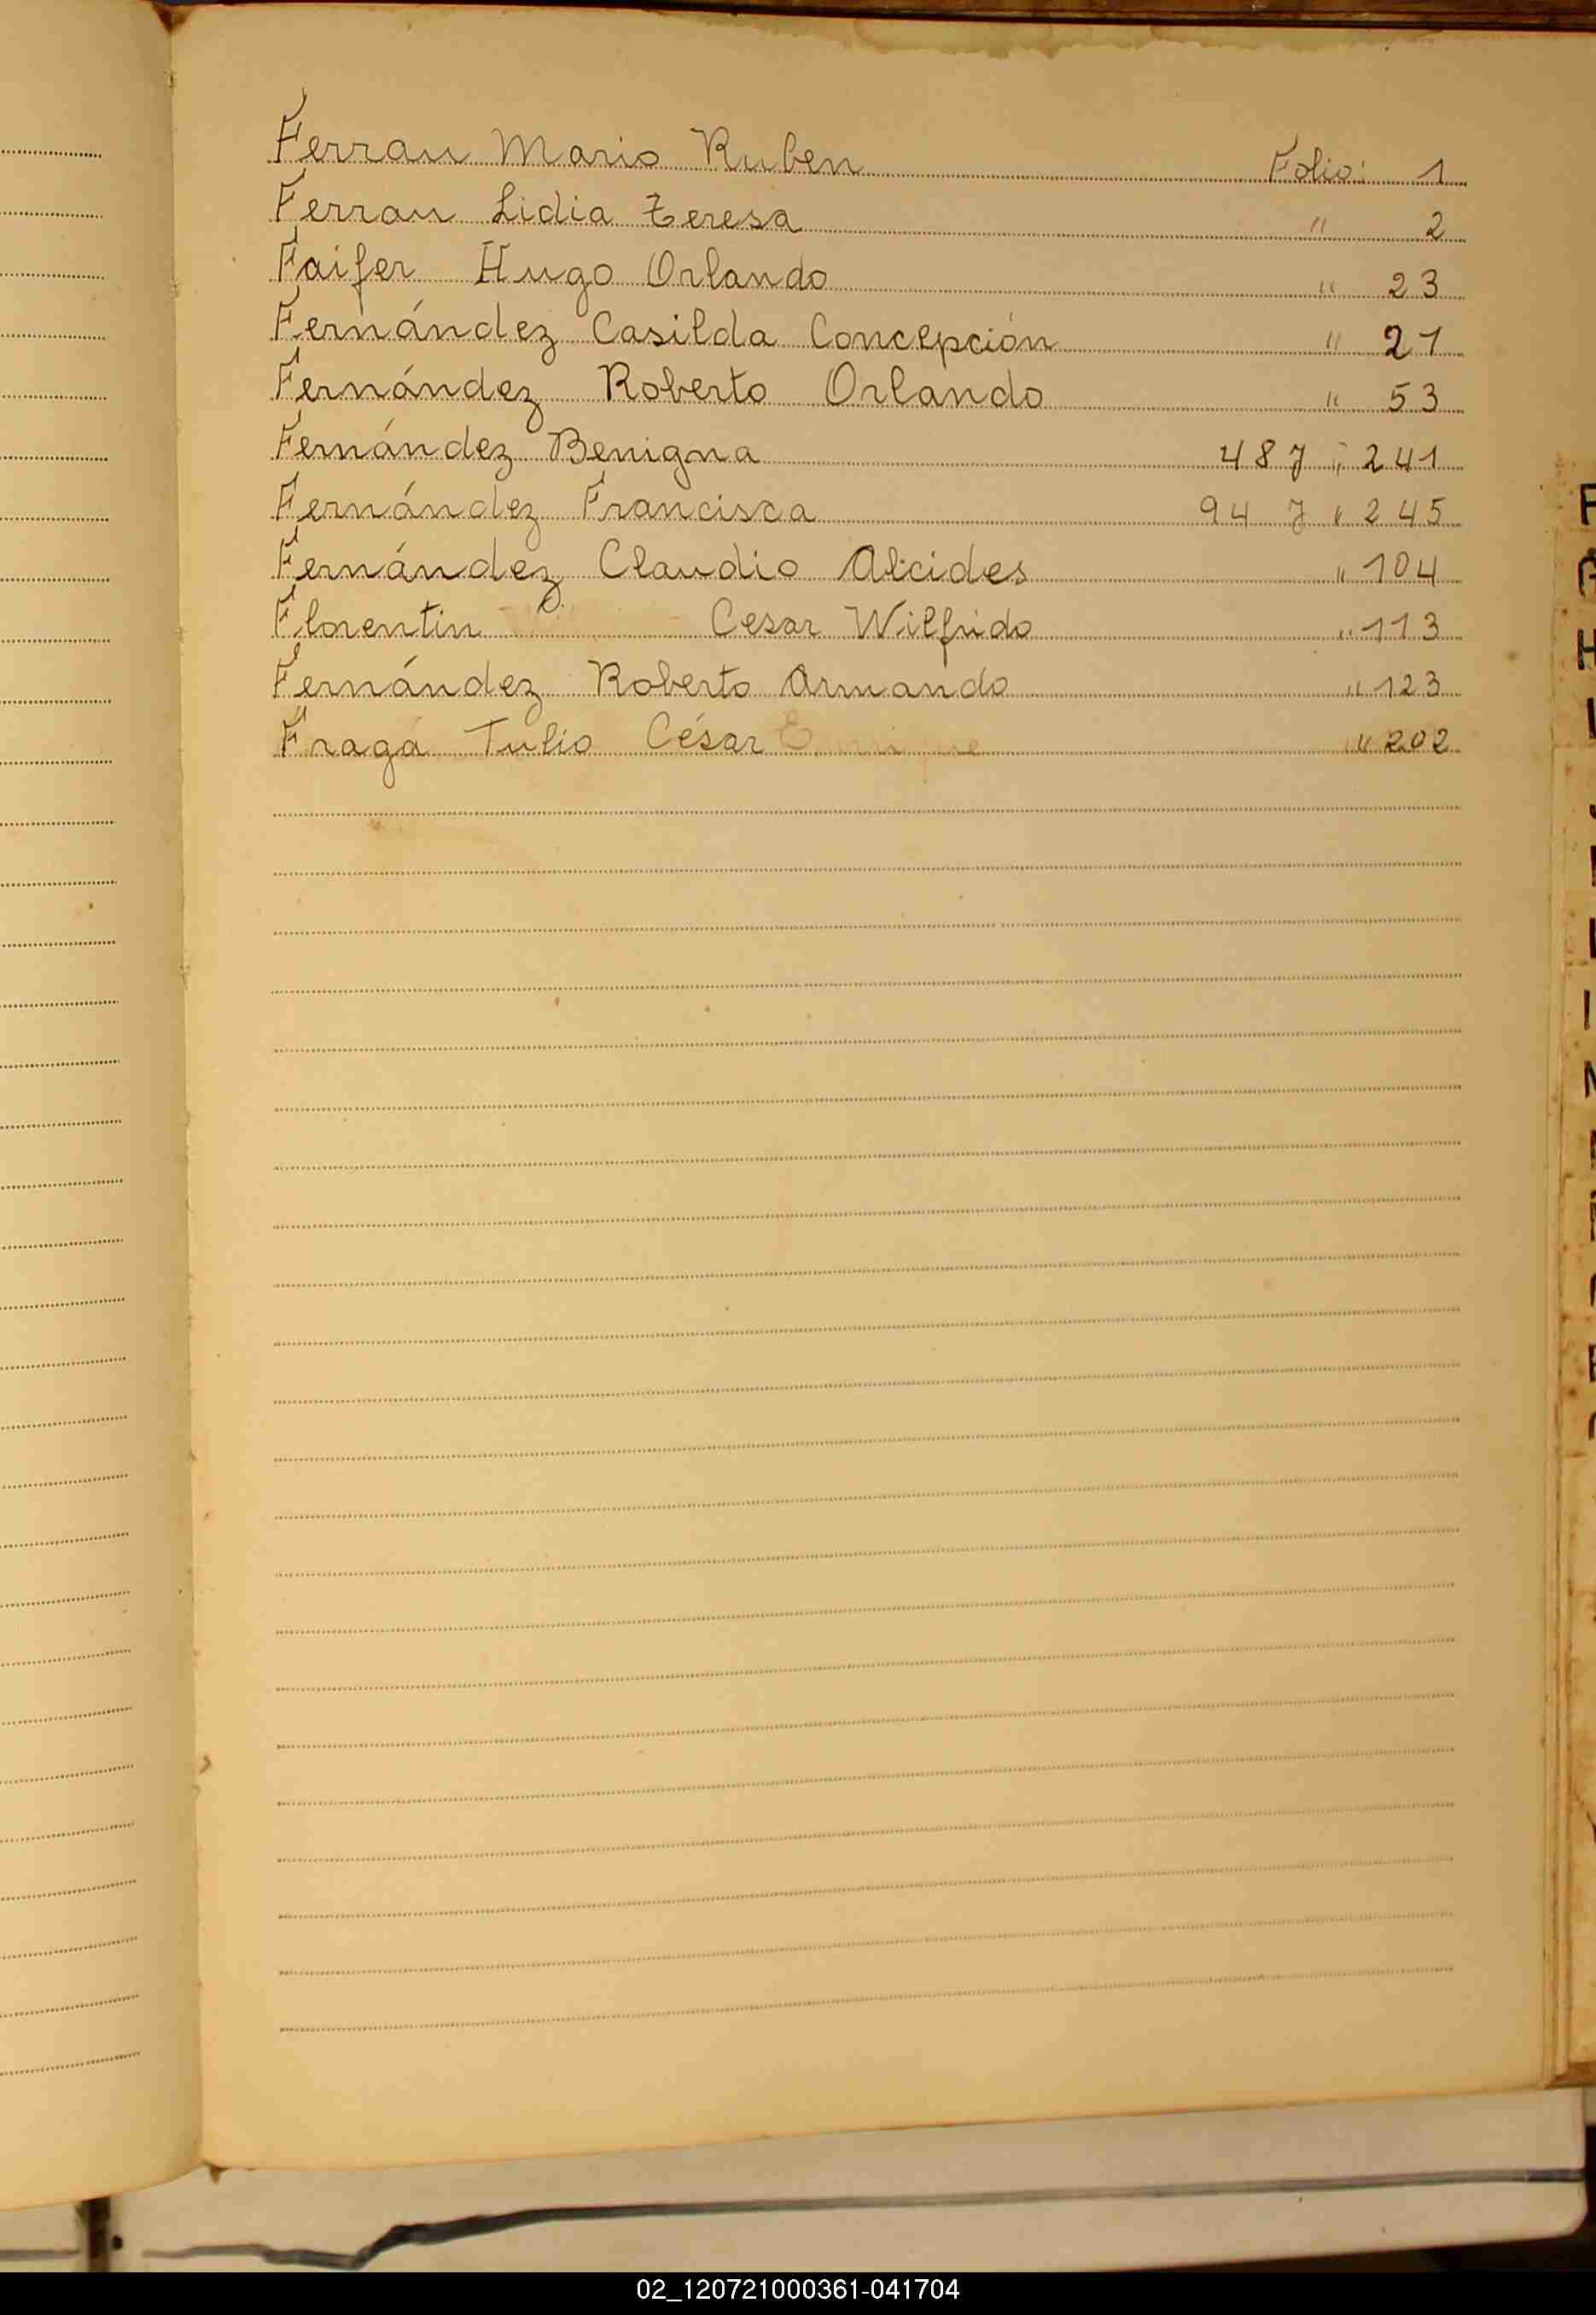 Ferrau Mario Ruben Folio: 1
Ferrau Lidia Teresa " 2
Faifer Hugo Orlando " 23
Fernández Casilda Concepción " 21
Fernández Roberto Orlando " 53
Fernández Benigna 48 y " 241
Fernández Francisca 94 y " 245
Fernández Claudio Alcides " 104
Florentin Cesar Wilfrido " 113
Fernández Roberto Armando " 123
Fraga Tulio César " 202
02_120721000361-041704